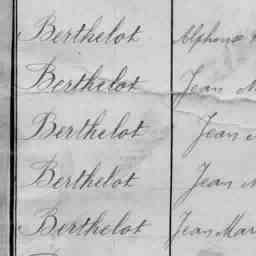 Berthelot Alphonse
Berthelot Jean M
Berthelot Jean
Berthelot Jean M
Berthelot Jean Mar